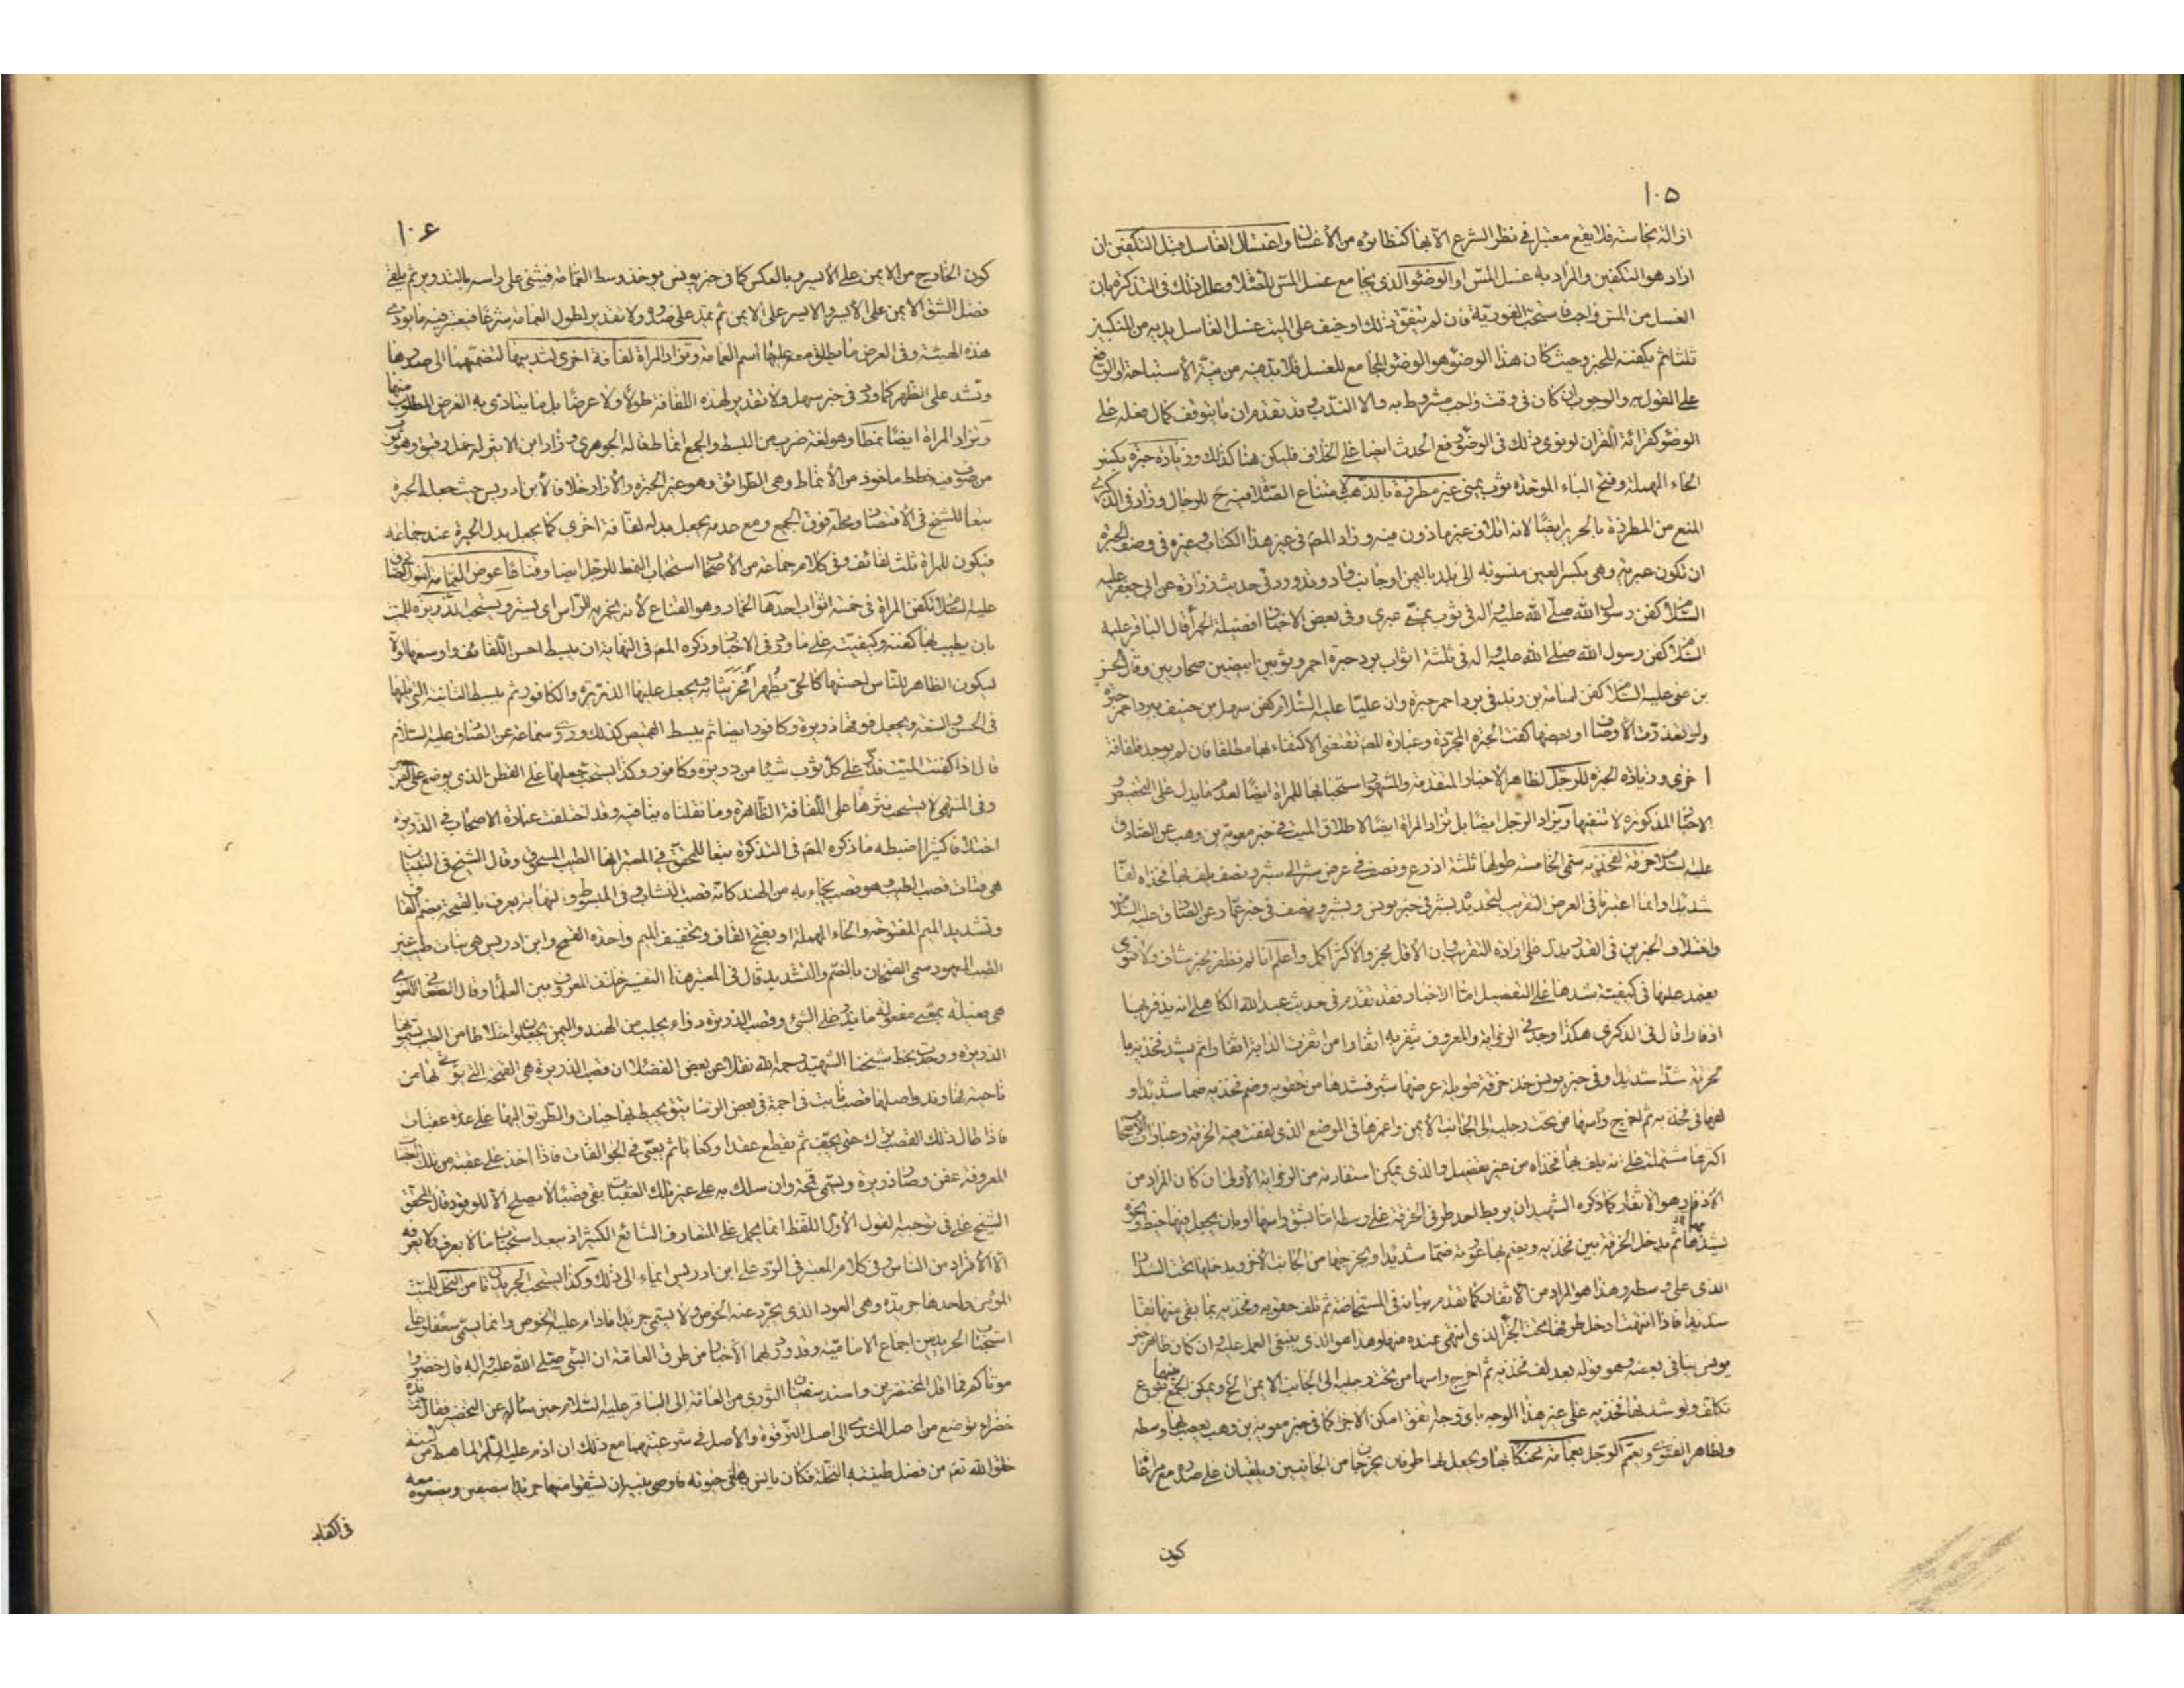 ١٠٥
ازالة نجاسة فلا يقع معتبرا في نظر الشرع الا بها كنظائره من الأغسال واغتسال الغاسل قبل التكفين ان
اراد هو التكفين والمراد به غسل المس او الوضوء الذي يجامع غسل المس للصلاة وعلل ذلك في التذكرة بان
الغسل من المس واجب فاستحب الفورية فان لم يتفق ذلك او خيف على الميت غسل الغاسل يديه من المنكبين
ثلثا ثم يكفنه للخبر وحيث كان هذا الوضوء هو الوضوء المجامع للغسل فلا بد فيه من نية الاستباحة او الرفع
على القول به والوجوب ان كان في وقت واجب مشروط به والا الندب وقد تقدم ان ما يتوقف كمال فعله على
الوضوء كقرائة القران لو نوى ذلك في الوضوء رفع الحدث ايضا على الخلاف فليكن هنا كذلك وزيادة حبرة بكسر
الحاء المهملة وفتح الباء الموحدة ثوب يمني غير مطرزة بالذهب لامتناع الصلاة فيه ح للرجال وزاد في الذكرى
المنع من المطرزة بالحرير ايضا لانه اتلاف غير ماذون فيه وزاد المص في غير هذا الكتاب وغيره في وصف الحبرة
ان تكون عبرية وهي بكسر العين منسوبة الى بلد باليمن او جانب واد وقد ورد في حديث زرارة عن ابي جعفر عليه
السلام كفن رسول الله صلى الله عليه واله في ثوب يمنية عبري وفي بعض الاخبار افضلية الحمراء قال الباقر عليه
السلام كفن رسول الله صلى الله عليه واله في ثلثة اثواب برد حبرة احمر وثوبين ابيضين صحاريين وقال الحسن
بن علي عليه السلام كفن اسامة بن زيد في برد احمر حبرة وان عليا عليه السلام كفن سهل بن حنيف ببرد احمر حبرة
ولو تعذرت الاوصاف او بعضها كفت الحبرة المجردة وعبارة المص تقتضي الاكتفاء بها مطلقا فان لم يوجد فلفافة
اخرى وزيادة الحبرة للرجل لظاهر الاخبار المتقدمة والمشهور استحبابها للمراة ايضا لعدم ما يدل على التخصيص و
الاخبار المذكورة لا تنفيها وتزاد الرجل ايضا بل تزاد المراة ايضا لاطلاق الميت في خبر معوية بن وهب عن الصادق
عليه السلام خرقة لفخذيه تسمى الخامسة طولها ثلثة اذرع ونصف في عرض شبر الى شبر ونصف يلف بها فخذاه لفا
شديدا وانما اعتبرنا في العرض التقريب لتحديده بشبر في خبر يونس وبشبر ونصف في خبر عمار عن الصادق عليه السلام
واختلاف الخبرين في القدر يدل على ارادة التقريب وان الاقل مجز والاكثر اكمل واعلم انا لم نظفر بخبر شاف ولا فتوى
يعتمد عليها في كيفية شدها على التفصيل اما الاخبار فقد تقدم في حديث عبد الله الكاهلي انه يذفر بها
اذفارا قال في الذكرى هكذا وجد في الرواية والمعروف يثفر به اثفارا من اثفرت الدابة اثفارا ثم يشد فخذيه بما
بخرقة شدا شديدا وفي خبر يونس خذ خرقة طويلة عرضها شبر فشدها من حقويه وضم فخذيه ضما شديدا و
لفها في فخذيه ثم اخرج راسها من تحت رجليه الى الجانب الايمن واغمزها في الموضع الذي لففت فيه الخرقة وعبارات الاصحاب
اكثرها مشتملة على انه يلف بها فخذاه من غير تفصيل والذي يمكن استفادته من الرواية الاولى ان كان المراد من
الاذفار هو الاثفار كما ذكره الشهيد ان يربط احد طرفي الخرقة على وسطه اما بشق راسها او بان يجعل فيها خيط ونحوه
يشدها ثم يدخل الخرقة بين فخذيه ويضم بها عورته ضما شديدا ويخرجها من الجانب الاخر ويدخلها تحت الشداد
الذي على وسطه وهذا هو المراد من الاثفار كما تقدم بيانه في المستحاضة ثم تلف حقويه وفخذيه بما بقي منها لفا
شديدا فاذا انتهت ادخل طرفها تحت الجزء الذي انتهى عنده منها وهذا هو الذي ينبغي العمل عليه وان كان ظاهر خبر
يونس ينافي بعضه وهو قوله بعد لف فخذيه ثم اخرج راسها من تحت رجليه الى الجانب الايمن الخ ويمكن الجمع بينهما بنوع
تكلف ولو شد بها فخذيه على غير هذا الوجه باي وجه اتفق امكن الاجزاء كما في خبر معوية بن وهب يعصب بها وسطه
ولظاهر الفتوى ويعمم الرجل بعمامة محنكا بها ويجعل لها طرفان يخرجان من الجانبين ويلقيان على صدره مع مراعاة
كون
١٠۶
كون الخارج من الايمن على الايسر وبالعكس كما في خبر يونس يوخذ وسط العمامة فيثنى على راسه بالتدوير ثم يلقى
فضل الشق الايمن على الايسر والايسر على الايمن ثم يمد على صدره ولا تقدير لطول العمامة شرعا فيعتبر فيه ما يودي
هذه الهيئة وفي العرض ما يطلق معه عليها اسم العمامة وتزاد المراة لفافة اخرى لشد ثدييها لتضمهما الى صدرها
وتشد على الظهر كما ورد في خبر سهل ولا تقدير لهذه اللفافة طولا ولا عرضا بل ما يتادى به الغرض المطلوب منها
وتزاد المراة ايضا نمطا وهو لغة ضرب من البسط والجمع انماط قاله الجوهري وزاد ابن الاثير له خمل رقيق وهو ثوب
من صوف فيه خطط ماخوذ من الانماط وهي الطرائق وهو غير الحبرة والازار خلافا لابن ادريس حيث جعله الحبرة
تبعا للشيخ في الاقتصاد ومحله فوق الجميع ومع عدمه يجعل بدله لفافة اخرى كما يجعل بدل الحبرة عند جماعة
فيكون للمراة ثلث لفائف وفي كلام جماعة من الاصحاب استحباب النمط للرجل ايضا وقناعا عوض العمامة لقول الصادق
عليه السلام تكفن المراة في خمسة اثواب احدها الخمار وهو القناع لانه يخمر به الراس اي يستر ويستحب الذريرة للميت
بان يطيب بها كفنه وكيفيته على ما ورد في الاخبار وذكره المص في النهاية ان يبسط احسن اللفائف واوسعها اولا
ليكون الظاهر للناس احسنها كالحي يظهر افخر ثيابه ويجعل عليها الذريرة والكافور ثم يبسط الثانية التي تليها
في الحسن والسعة ويجعل فوقها ذريرة وكافورا ايضا ثم يبسط القميص كذلك وروى سماعة عن الصادق عليه السلام
قال اذا كفنت الميت فذر على كل ثوب شيئا من ذريرة وكافور وكذا يستحب جعلها على القطن الذي يوضع على الفرج
وفي المنتهى لا يستحب نثرها على اللفافة الظاهرة وما نقلناه ينافيه وقد اختلفت عبارة الاصحاب في الذريرة
اختلافا كثيرا اضبطه ما ذكره المص في التذكرة تبعا للمحقق في المعتبر انها الطيب المسحوق وقال الشيخ في التبيان
هي فتات قصب الطيب وهو قصب يجاء به من الهند كانه قصب النشاب وفي المبسوط والنهاية يعرف بالقمحة بضم القاف
وتشديد الميم المفتوحة والحاء المهملة او بفتح القاف وتخفيف الميم واحدة القمح وابن ادريس هي نبات طيب غير
الطيب المعهود سمى القمحان بالضم والتشديد قال في المعتبر هذا التفسير خلاف المعروف بين العلماء وقال الصغاني اللغوي
هي فعيلة بمعنى مفعولة ما يذر على الشئ وقصب الذريرة دواء يجلب من الهند واليمن يجعلون اخلاطا من الطيب يسمونها
الذريرة ووجدت بخط شيخنا الشهيد رحمه الله نقلا عن بعض الفضلاء ان قصب الذريرة هي القمحة التي يؤتى بها من
ناحية نهاوند واصلها قصب نابت في اجمة في بعض الرساتيق يحيط بها حيات والطريق اليها على عدة عقبات
فاذا طال ذلك القصب ترك حتى يجف ثم يقطع عقدا وكعابا ثم يعبى في الجوالقات فاذا اخذ على عقبة من تلك العقبات
المعروفة عفن وصار ذريرة ويسمى قمحة وان سلك به على غير تلك العقبات بقي قصبا لا يصلح الا للوقود وقال المحقق
الشيخ علي في توجيه القول الاول اللفظ انما يحمل على المتعارف الشائع الكثير اذ يبعد استحباب ما لا يعرف ولا يعرفه
الا الافراد من الناس وفي كلام المعتبر في الرد على ابن ادريس ايماء الى ذلك وكذا يستحب الجريدتان من النخل للميت
المؤمن واحدها جريدة وهي العود الذي يجرد عنه الخوص ولا يسمى جريدا ما دام عليه الخوص وانما يسمى سعفا وعلى
استحباب الجريدتين اجماع الامامية وقد ورد بهما الاخبار من طرق العامة ان النبي صلى الله عليه واله قال خضروا
موتاكم فما اقل المخضرين واسند سفيان الثوري من العامة الى الباقر عليه السلام حين ساله عن التخضير فقال جريدة
خضراء توضع من اصل الثدي الى اصل الترقوة والاصل في شرعيتهما مع ذلك ان ادم عليه السلام لما هبط من الجنة
خلق الله تعم من فضل طينته النخلة فكان يانس بها في حيوته فاوصى بنيه ان يشقوا منها جريدا بنصفين ويضعوه معه
في اكفانه